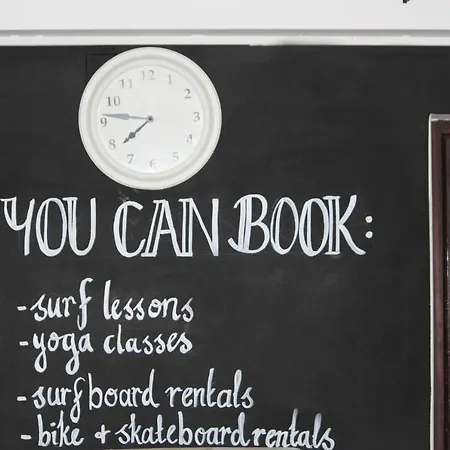 12
1
2
3
4
5
6
7
8
9
10
YOU CAN BOOK:
- surf lessons
- yoga classes
- surfboard rentals
- bike + skateboard rentals